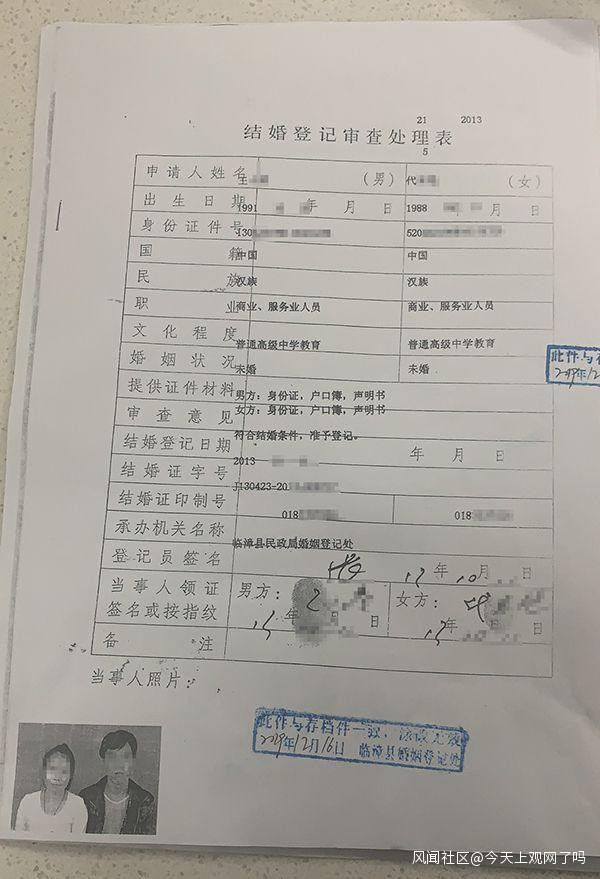 21 2013
结婚登记审查处理表
5
申请人姓名 王 (男) 代 (女)
出生日期 1991 年 月 日 1988 年 月 日
身份证件号 130 520
国籍 中国 中国
民族 汉族 汉族
职业 商业、服务业人员 商业、服务业人员
文化程度 普通高级中学教育 普通高级中学教育
婚姻状况 未婚 未婚
提供证件材料 男方：身份证，户口簿，声明书
女方：身份证，户口簿，声明书
审查意见 符合结婚条件，准予登记。
结婚登记日期 2013 年 月 日
结婚证字号 J130423-20
结婚证印制号 018 018
承办机关名称 临漳县民政局婚姻登记处
登记员签名 年 10 月
当事人领证 男方： 女方：
签名或按指纹 年 日 年 日
备注
当事人照片：
此件与存
2019年12
此件与存档件一致，涂改无效
2019年12月16日 临漳县婚姻登记处
风闻社区@今天上观网了吗